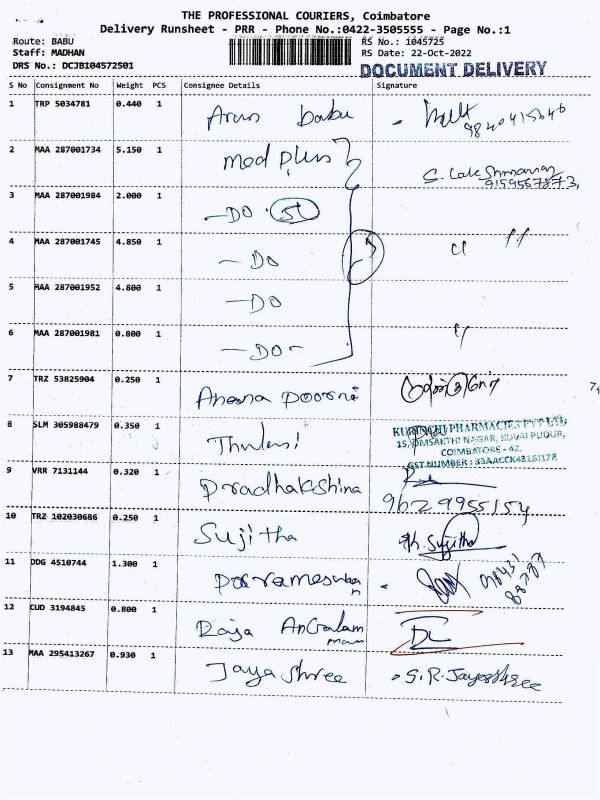 THE PROFESSIONAL COURIERS, Coimbatore
Delivery Runsheet - PRR - Phone No.:0422-3505555 - Page No.:1
Route: BABU RS No.: 1045725
Staff: MADHAN RS Date: 22-Oct-2022
DRS No.: DCJB104572501 DOCUMENT DELIVERY
S No Consignment No Weight PCS Consignee Details Signature
1 TRP 5034781 0.440 1 Arun babu
9840415646
2 MAA 287001734 5.150 1 med plus S. Lakshmanan
9159557873
3 MAA 287001984 2.000 1 —DO
4 MAA 287001745 4.850 1 —DO "
5 MAA 287001952 4.800 1 —DO
6 MAA 287001981 0.800 1 —DO— "
7 TRZ 53825904 0.250 1
8 SLM 305988479 0.350 1 Thulasi KURINCHI PHARMACIES PVT LTD
15, OMSAKTHI NAGAR, KOVAI PUDUR,
COIMBATORE - 42.
GST NUMBER :
9 VRR 7131144 0.320 1 Pradhakshina
9629955154
10 TRZ 102030686 0.250 1 Sujitha K. Sujitha
11 DDG 4510744 1.300 1
12 CUD 3194845 0.800 1 Raja
13 MAA 295413267 0.930 1 Jaya Shree S.R. Jayashree